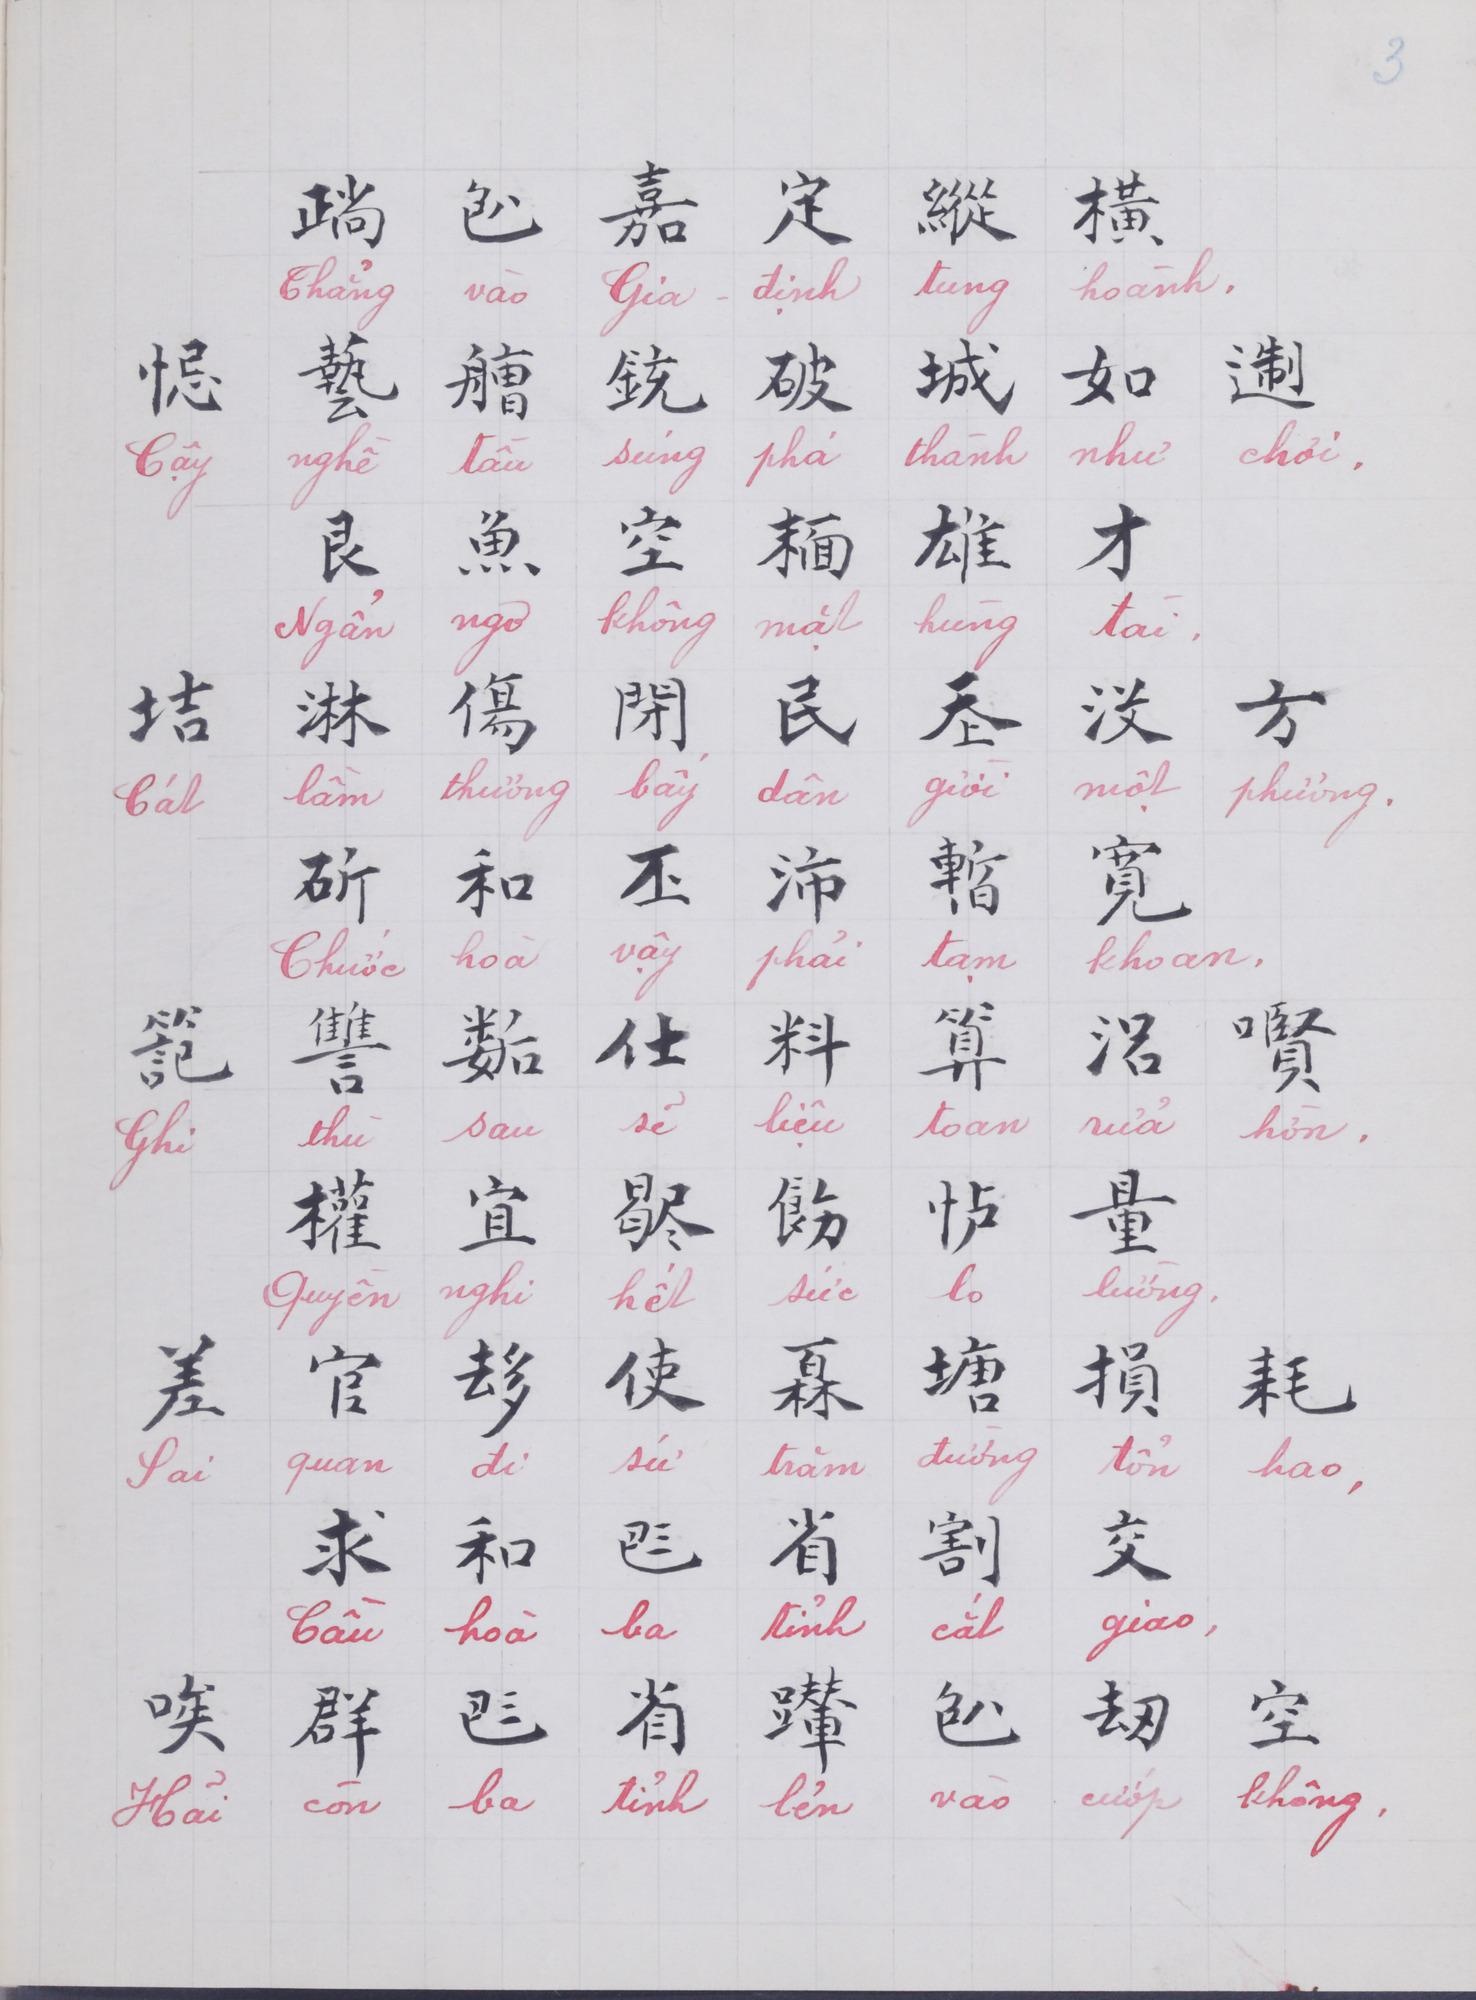 3
𨅉 𠓨 嘉 定 縱 橫
Thẳng vào Gia-định tung hoành.
藝 艚 銃 破 城 如
Cậy nghề tầu súng phá thành như chổi.
艮 魚 空 𩈘 雄 才
Ngẩn ngơ không mặt hùng tài.
𡋥 淋 傷 閉 民 𡗶 𣳔 方
Cát lầm thương bấy dân giời một phương.
斫 和 丕 沛 暫 寬
Chước hoà vậy phải tạm khoan.
讐 仕 料 算 沼
Ghi thù sau sẽ liệu toan rửa hờn.
權 宜 歇 飭 𢗼 量
Quyền nghi hết sức lo lường.
差 官 𠫾 使 𤾓 塘 損 耗
Sai quan đi sứ trăm đường tổn hao,
求 和 𠀧 省 割 交
Cầu hoà ba tỉnh cắt giao,
唉 群 𠀧 省 𠓨 刧 空
Hãi còn ba tỉnh lẻn vào cướp không.